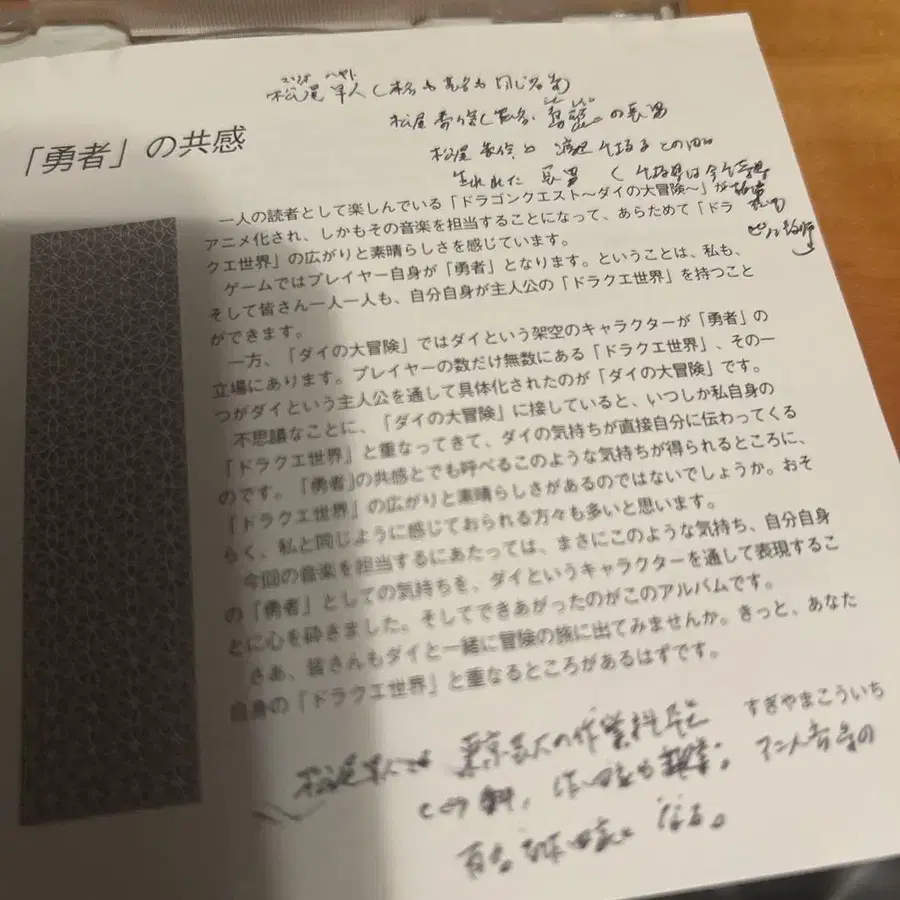 松尾早人(本名も芸名も同じ名前)
マツオ ハヤト
の長男
松尾 と との間に
生れれた 長男
「勇者」の共感
一人の読者として楽しんでいる「ドラゴンクエスト〜ダイの大冒険〜」が
アニメ化され、しかもその音楽を担当することになって、あらためて「ドラ
クエ世界」の広がりと素晴らしさを感じています。
ゲームではプレイヤー自身が「勇者」となります。ということは、私も、
そして皆さん一人一人も、自分自身が主人公の「ドラクエ世界」を持つこと
ができます。
一方、「ダイの大冒険」ではダイという架空のキャラクターが「勇者」の
立場にあります。プレイヤーの数だけ無数にある「ドラクエ世界」、その一
つがダイという主人公を通して具体化されたのが「ダイの大冒険」です。
不思議なことに、「ダイの大冒険」に接していると、いつしか私自身の
「ドラクエ世界」と重なってきて、ダイの気持ちが直接自分に伝わってくる
のです。「勇者」の共感とでも呼べるこのような気持ちが得られるところに、
「ドラクエ世界」の広がりと素晴らしさがあるのではないでしょうか。おそ
らく、私と同じように感じておられる方々も多いと思います。
今回の音楽を担当するにあたっては、まさにこのような気持ち、自分自身
の「勇者」としての気持ちを、ダイというキャラクターを通して表現するこ
とに心を砕きました。そしてできあがったのがこのアルバムです。
さあ、皆さんもダイと一緒に冒険の旅に出てみませんか。きっと、あなた
自身の「ドラクエ世界」と重なるところがあるはずです。
すぎやまこういち
松尾早人は 東京芸大の作曲科
なる。